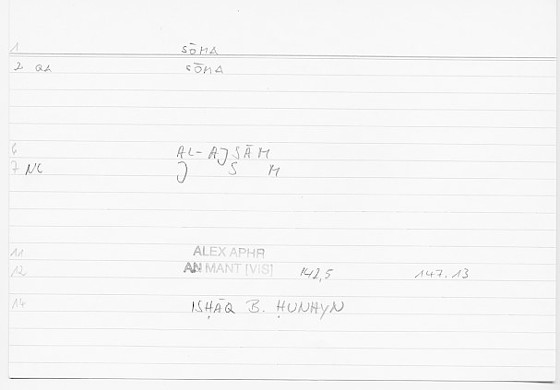 1 SŌMA
2 QA SŌMA
6 AL-AJSĀM
7 NC J S M
11 ALEX APHR
12 AN MANT [VIS] 142,5 147.13
14 ISḤĀQ B. ḤUNAYN